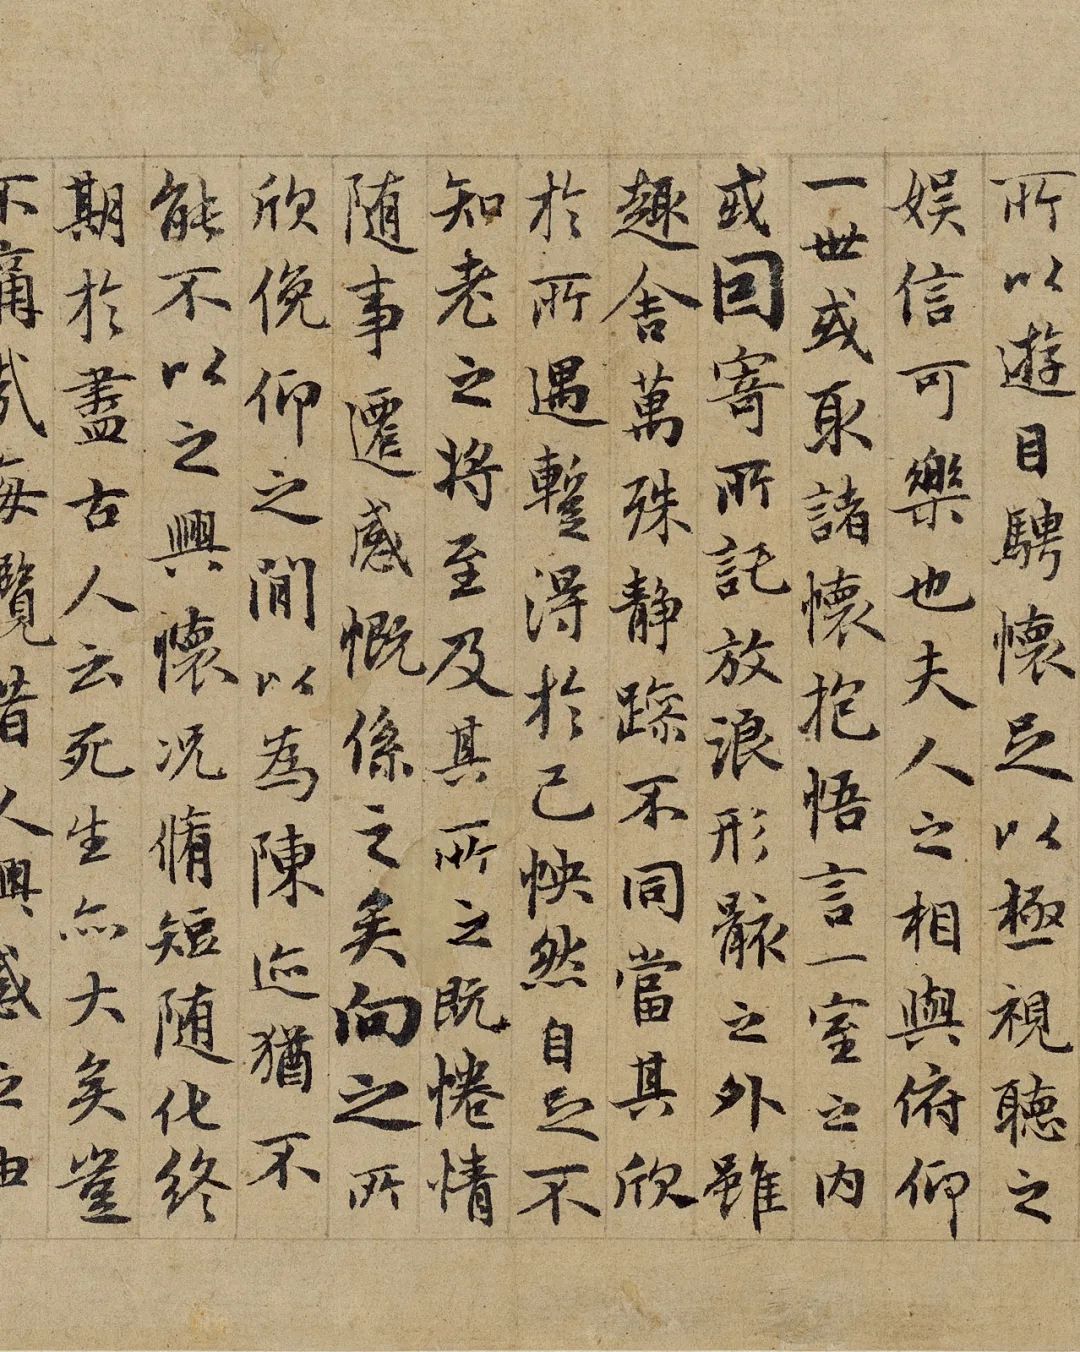 所以遊目騁懷足以極視聽之
娛信可樂也夫人之相與俯仰
一世或取諸懷抱悟言一室之內
或因寄所託放浪形骸之外雖
趣舍萬殊静躁不同當其欣
於所遇蹔得於己怏然自足不
知老之將至及其所之既惓情
随事遷感慨係之矣向之所
欣俛仰之閒以為陳迹猶不
能不以之興懷況脩短随化終
期於盡古人云死生亦大矣豈
不痛哉每攬昔人興感之由